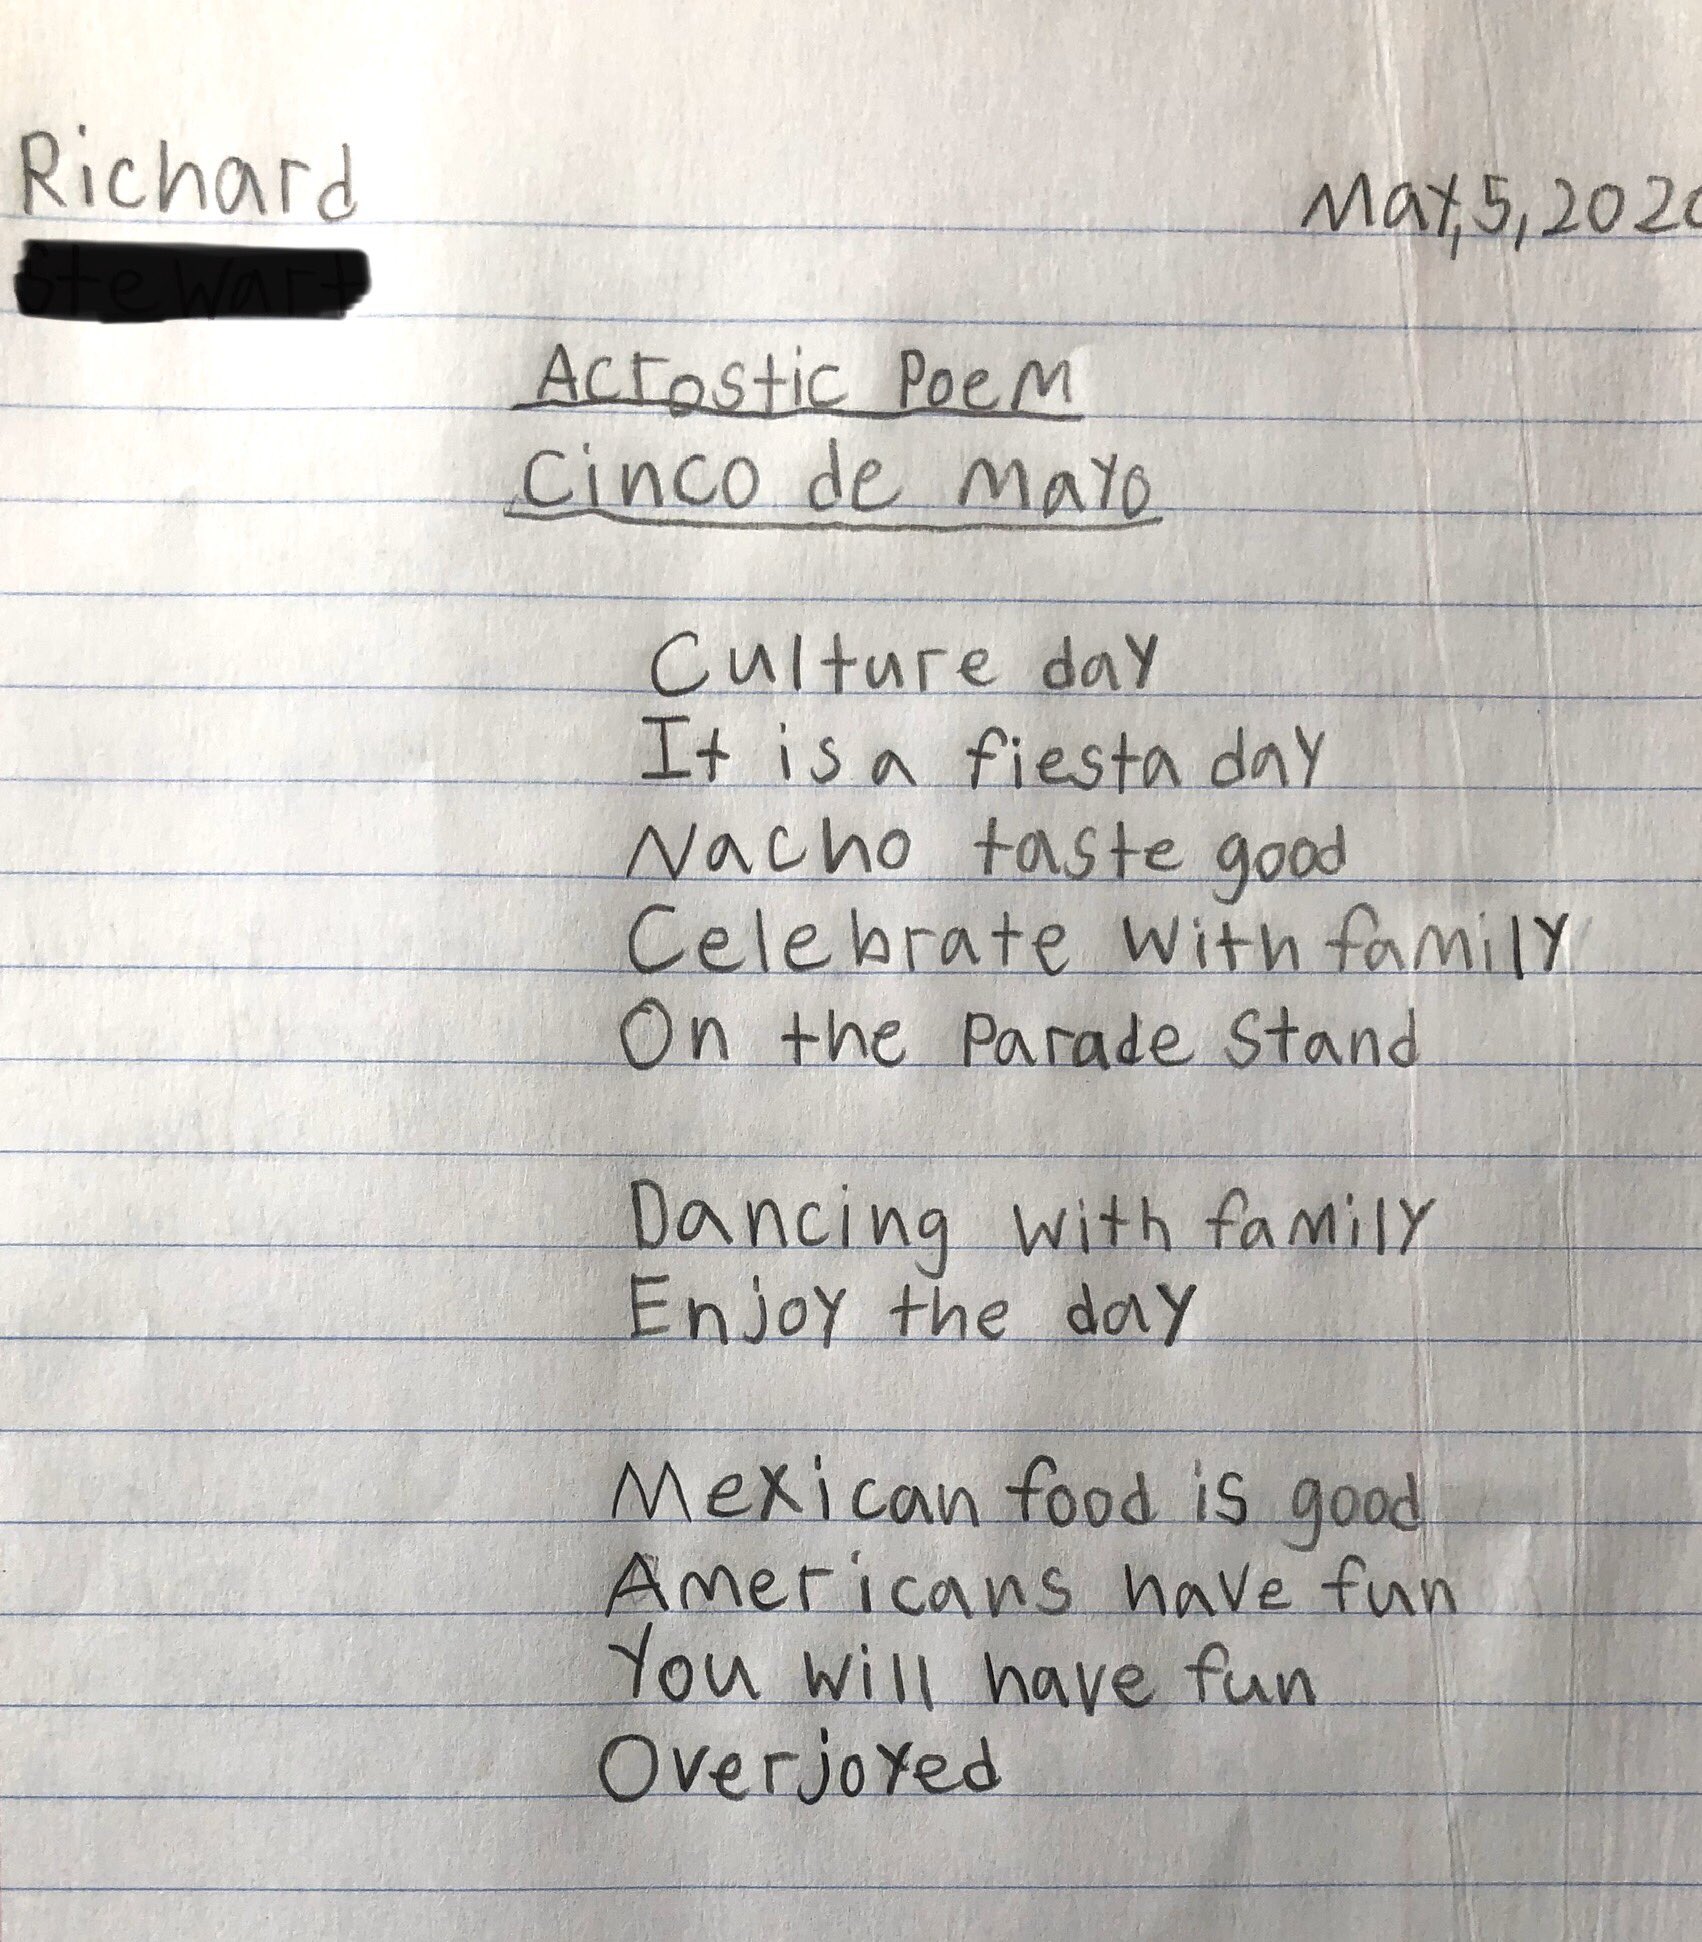 Richard
May, 5, 202
Acrostic Poem
Cinco de Mayo
Culture day
It is a fiesta day
Nacho taste good
Celebrate with family
On the Parade Stand
Dancing with family
Enjoy the day
Mexican food is good
Americans have fun
You will have fun
Overjoyed